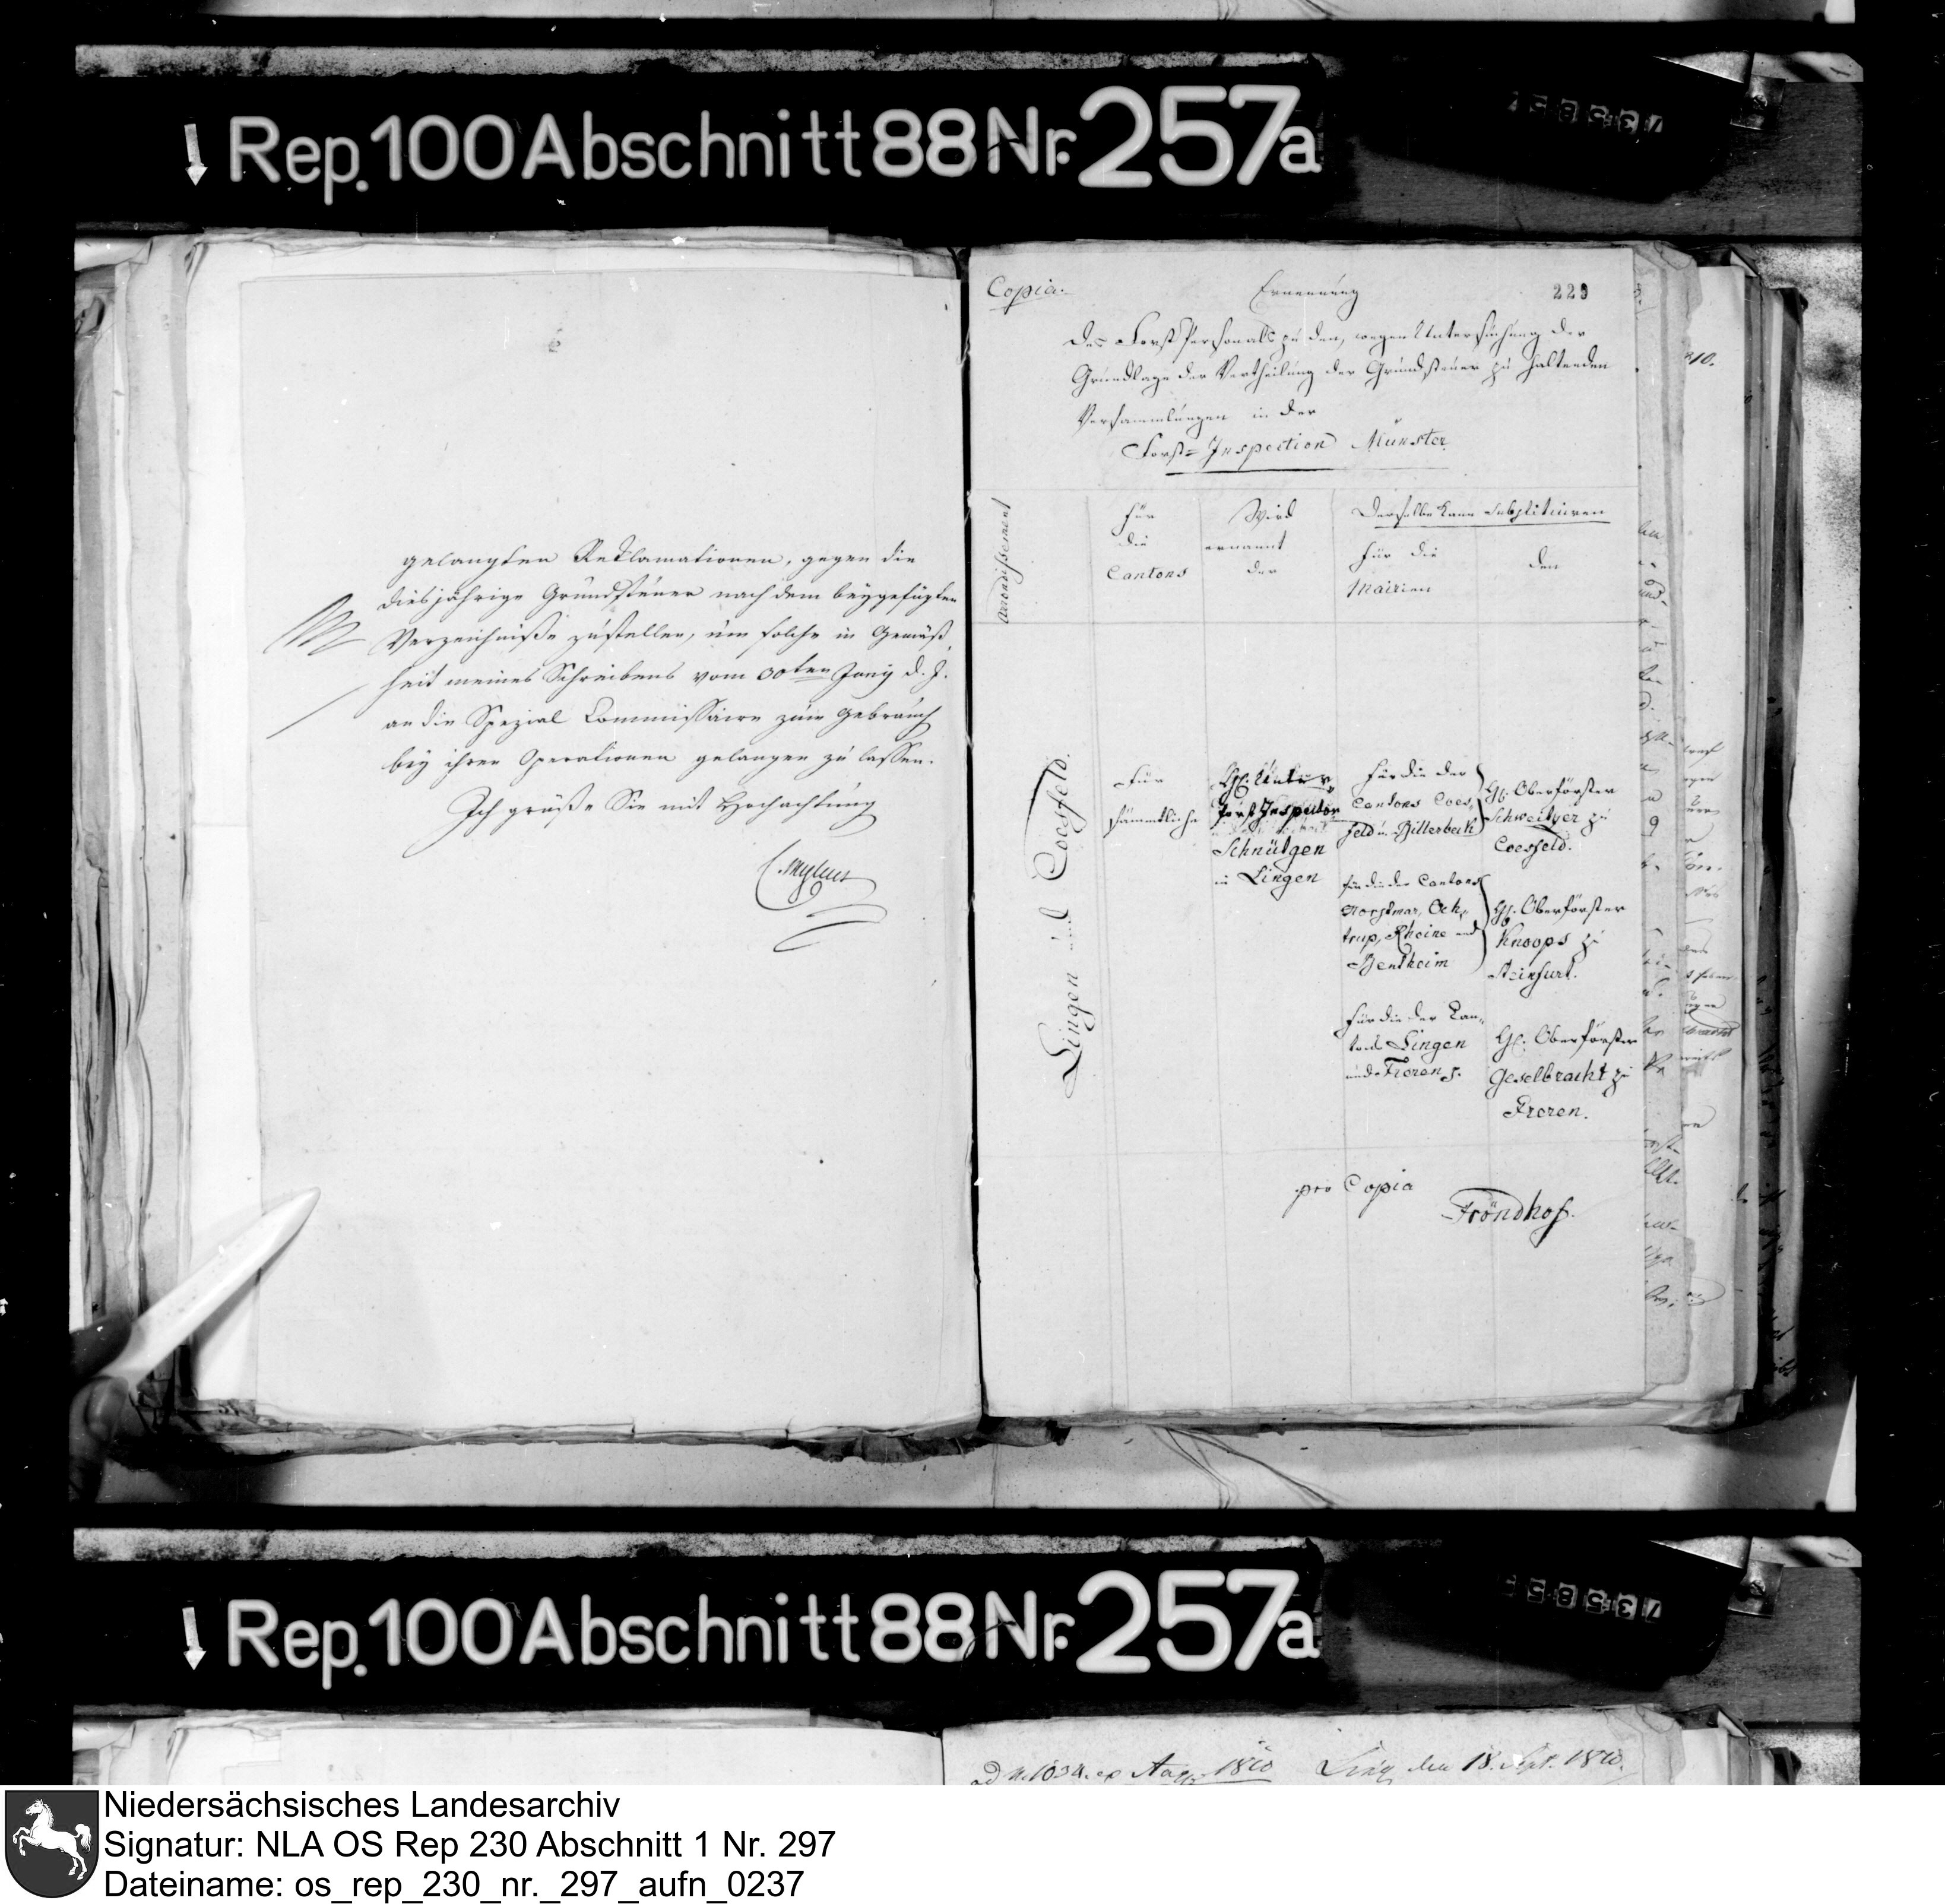 Rep. 100 Abschnitt 88 Nr. 257a
gelangten Reklamationen, gegen die
diesjährige Grundsteuer nach dem beygefügten
Verzeichniße zustellen, um solche in Gemäß
heit meines Schreibens vom 30ten Juny d. J.
an die Spezial Commissaire zum Gebrauch
bey ihren Operationen gelangen zu lassen.
Ich grüße Sie mit Hochachtung
Copia.
Ernennung
229
des Forst Personals zu den, wegen Untersuchung der
Grundlage der Vertheilung der Grundsteuer zu haltenden
Versammlungen in der
Forst=Inspection Münster.
Arrondissement
Für
die
Cantons
Wird
ernannt
der
Derselbe kann substituiren
für die
Mairien
den
Lingen und Coesfeld.
Für
sämmtliche
H. Unter
forst Inspector
Schnütgen
in Lingen
Für die der
Cantons Coes,
feld u. Billerbeck
H. Oberförster
Schweitzer zu
Coesfeld.
für die der Cantons
Horstmar, Och,
trup, Rheine und
Bentheim
H. Oberförster
Knoops zu
Steinfurt.
Für die der Can,
tons Lingen
und Freren.
H. Oberförster
Geselbracht zu
Freren.
pro Copia
Fröndhof.
Rep. 100 Abschnitt 88 Nr. 257a
1810
den 18. Sept. 1810.
Niedersächsisches Landesarchiv
Signatur: NLA OS Rep 230 Abschnitt 1 Nr. 297
Dateiname: os_rep_230_nr._297_aufn_0237